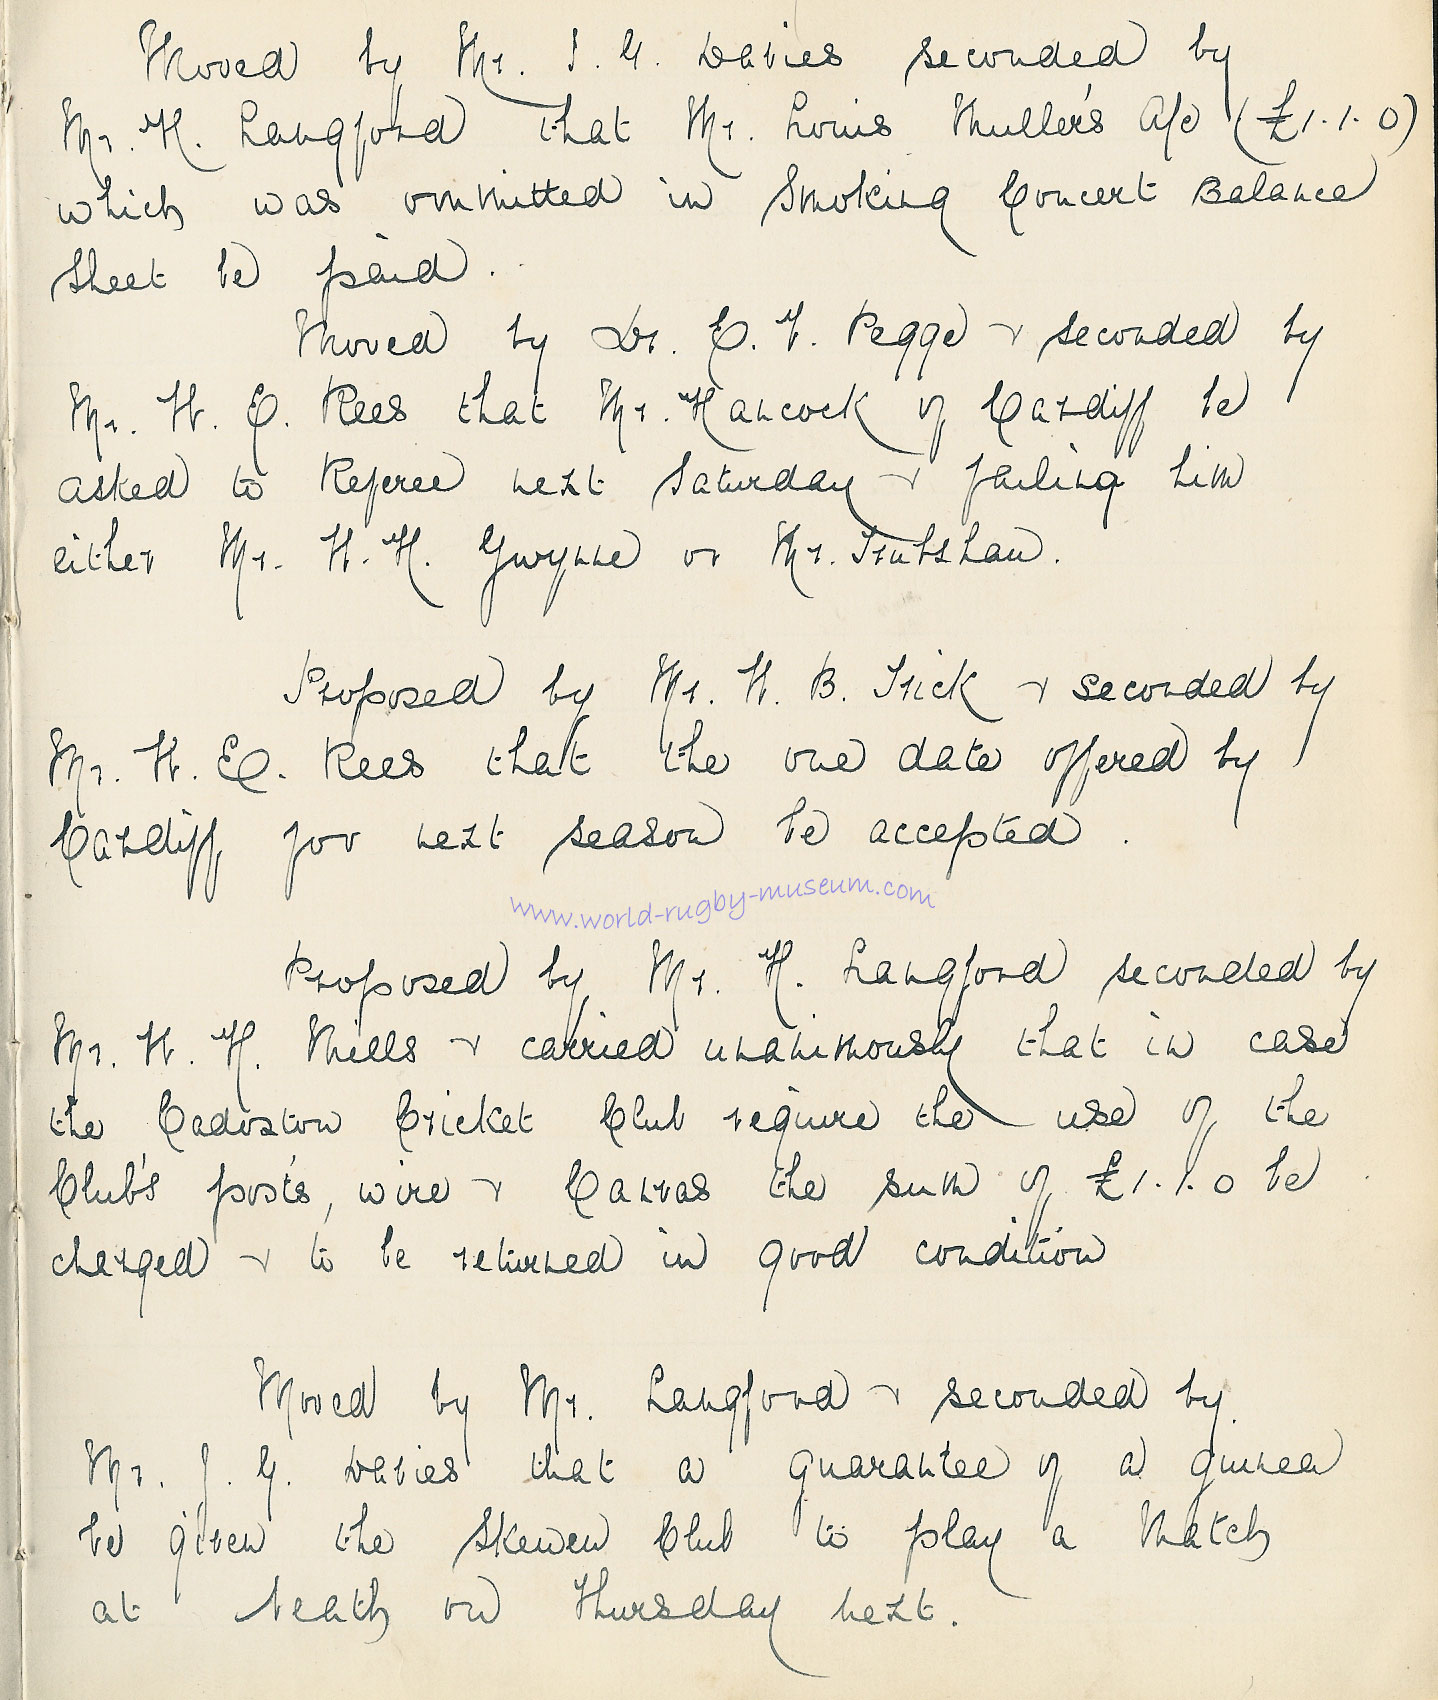 Moved by Mr. J. G. Davies seconded by
Mr. H. Langford that Mr. Louis Muller's A/c (£1.1.0)
which was ommitted in Smoking Concert Balance
Sheet be paid.
Moved by Dr. E. V. Pegge & seconded by
Mr. W. E. Rees that Mr. Hancock of Cardiff be
asked to Referee next Saturday & failing him
either Mr. W. H. Gwynne or Mr. Trubshaw.
Proposed by Mr. W. B. Trick & seconded by
Mr. W. E. Rees that the one date offered by
Cardiff for next season be accepted.
www.world-rugby-museum.com
Proposed by Mr. H. Langford seconded by
Mr. W. H. Mills & carried unanimously that in case
the Cadoxton Cricket Club require the use of the
Club's posts, wire & Canvas the sum of £1.1.0 be
charged & to be returned in good condition
Moved by Mr. Langford & seconded by
Mr. J. G. Davies that a guarantee of a guinea
be given the Skewen Club to play a Match
at Neath on Thursday next.